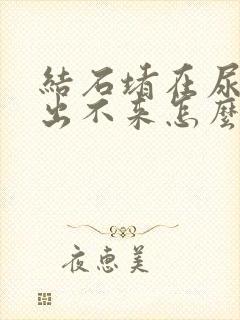 結石堵在尿
出不來怎麼
夜惠美